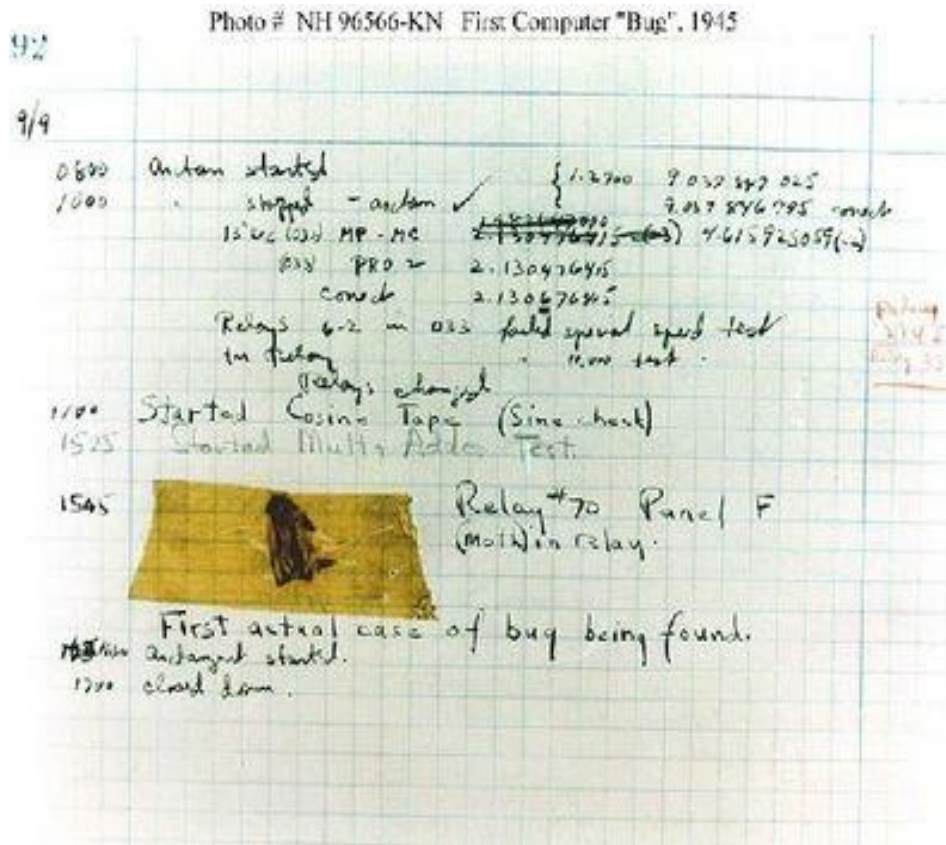 Photo # NH 96566-KN First Computer "Bug", 1945
92
9/9
0800 Antan started
1000 " stopped - antan ✓ { 1.2700 9.037 847 025
9.037 846 795 correct
13"UC (032) MP - MC 2.130476415 (-3) 4.615925059(-2)
033 PRO 2 2.130476415
correct 2.130676415
Relays 6-2 in 033 failed special speed test
In Relay " 11,000 test "
Relays changed
1100 Started Cosine Tape (Sine check)
1525 Started Mult+ Adder Test.
1545 Relay #70 Panel F
(Moth) in relay.
First actual case of bug being found.
antangent started.
1700 closed down.